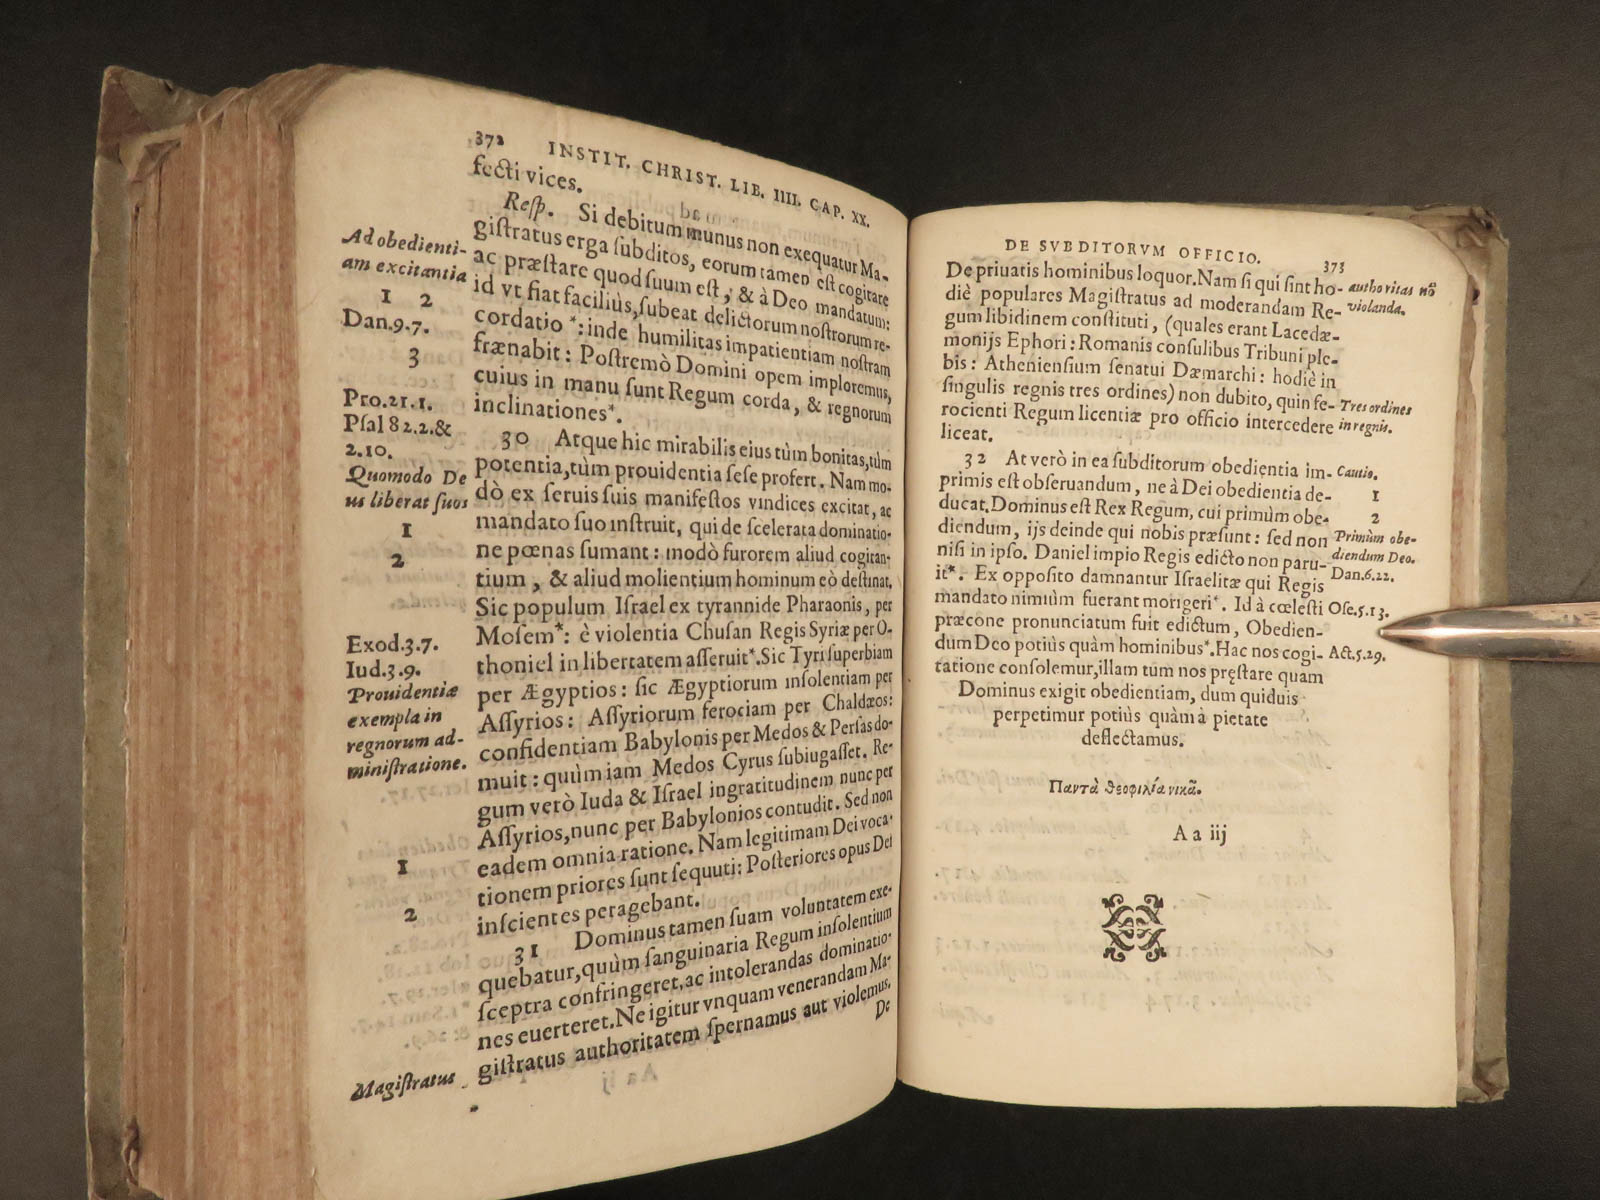 372 INSTIT. CHRIST. LIB. IIII. CAP. XX.
fecti vices.
Resp. Si debitum munus non exequatur Ma-
gistratus erga subditos, eorum tamen est cogitare
ac præstare quod suum est, & à Deo mandatum:
id vt fiat faciliùs, subeat delictorum nostrorum re-
cordatio *: inde humilitas impatientiam nostram
frænabit: Postremò Domini opem imploremus,
cuius in manu sunt Regum corda, & regnorum
inclinationes*.
30 Atque hic mirabilis eius tùm bonitas, tùm
potentia, tùm prouidentia sese profert. Nam mo-
dò ex seruis suis manifestos vindices excitat, ac
mandato suo instruit, qui de scelerata dominatio-
ne pœnas sumant: modò furorem aliud cogitan-
tium, & aliud molientium hominum eò destinat.
Sic populum Israel ex tyrannide Pharaonis, per
Mosem*: è violentia Chusan Regis Syriæ per O-
thoniel in libertatem asseruit*. Sic Tyri superbiam
per Ægyptios: sic Ægyptiorum insolentiam per
Assyrios: Assyriorum ferociam per Chaldæos:
confidentiam Babylonis per Medos & Persas do-
muit: quùm iam Medos Cyrus subiugasset. Re-
gum verò Iuda & Israel ingratitudinem nunc per
Assyrios, nunc per Babylonios contudit. Sed non
eadem omnia ratione. Nam legitimam Dei voca-
tionem priores sunt sequuti: Posteriores opus Dei
inscientes peragebant.
31 Dominus tamen suam voluntatem exe-
quebatur, quùm sanguinaria Regum insolentium
sceptra confringeret, ac intolerandas dominatio-
nes euerteret. Ne igitur vnquam venerandam Ma-
gistratus authoritatem spernamus aut violemus.
De
Ad obedienti-
am excitantia
1 2
Dan.9.7.
3
Pro.21.1.
Psal 82.2.&
2.10.
Quomodo De
us liberat suos
1
2
Exod.3.7.
Iud.3.9.
Prouidentiæ
exempla in
regnorum ad-
ministratione.
1
2
Magistratus
DE SVBDITORVM OFFICIO. 373
De priuatis hominibus loquor. Nam si qui sint ho-
diè populares Magistratus ad moderandam Re-
gum libidinem constituti, (quales erant Lacedæ-
monijs Ephori: Romanis consulibus Tribuni ple-
bis: Atheniensium senatui Dæmarchi: hodiè in
singulis regnis tres ordines) non dubito, quin fe-
rocienti Regum licentiæ pro officio intercedere
liceat.
32 At verò in ea subditorum obedientia im-
primis est obseruandum, ne à Dei obedientia de-
ducat. Dominus est Rex Regum, cui primùm obe-
diendum, ijs deinde qui nobis præsunt: sed non
nisi in ipso. Daniel impio Regis edicto non paru-
it*. Ex opposito damnantur Israelitæ qui Regis
mandato nimiùm fuerant morigeri*. Id à cœlesti
præcone pronunciatum fuit edictum, Obedien-
dum Deo potiùs quàm hominibus*. Hac nos cogi-
tatione consolemur, illam tum nos pręstare quam
Dominus exigit obedientiam, dum quiduis
perpetimur potiùs quàm à pietate
deflectamus.
Παντὰ θεοφιλία νικᾶ.
A a iij
authoritas nō
violanda.
Tres ordines
in regnis.
Cautio.
1
2
Primùm obe-
diendum Deo.
Dan.6.22.
Ose.5.13.
Act.5.29.